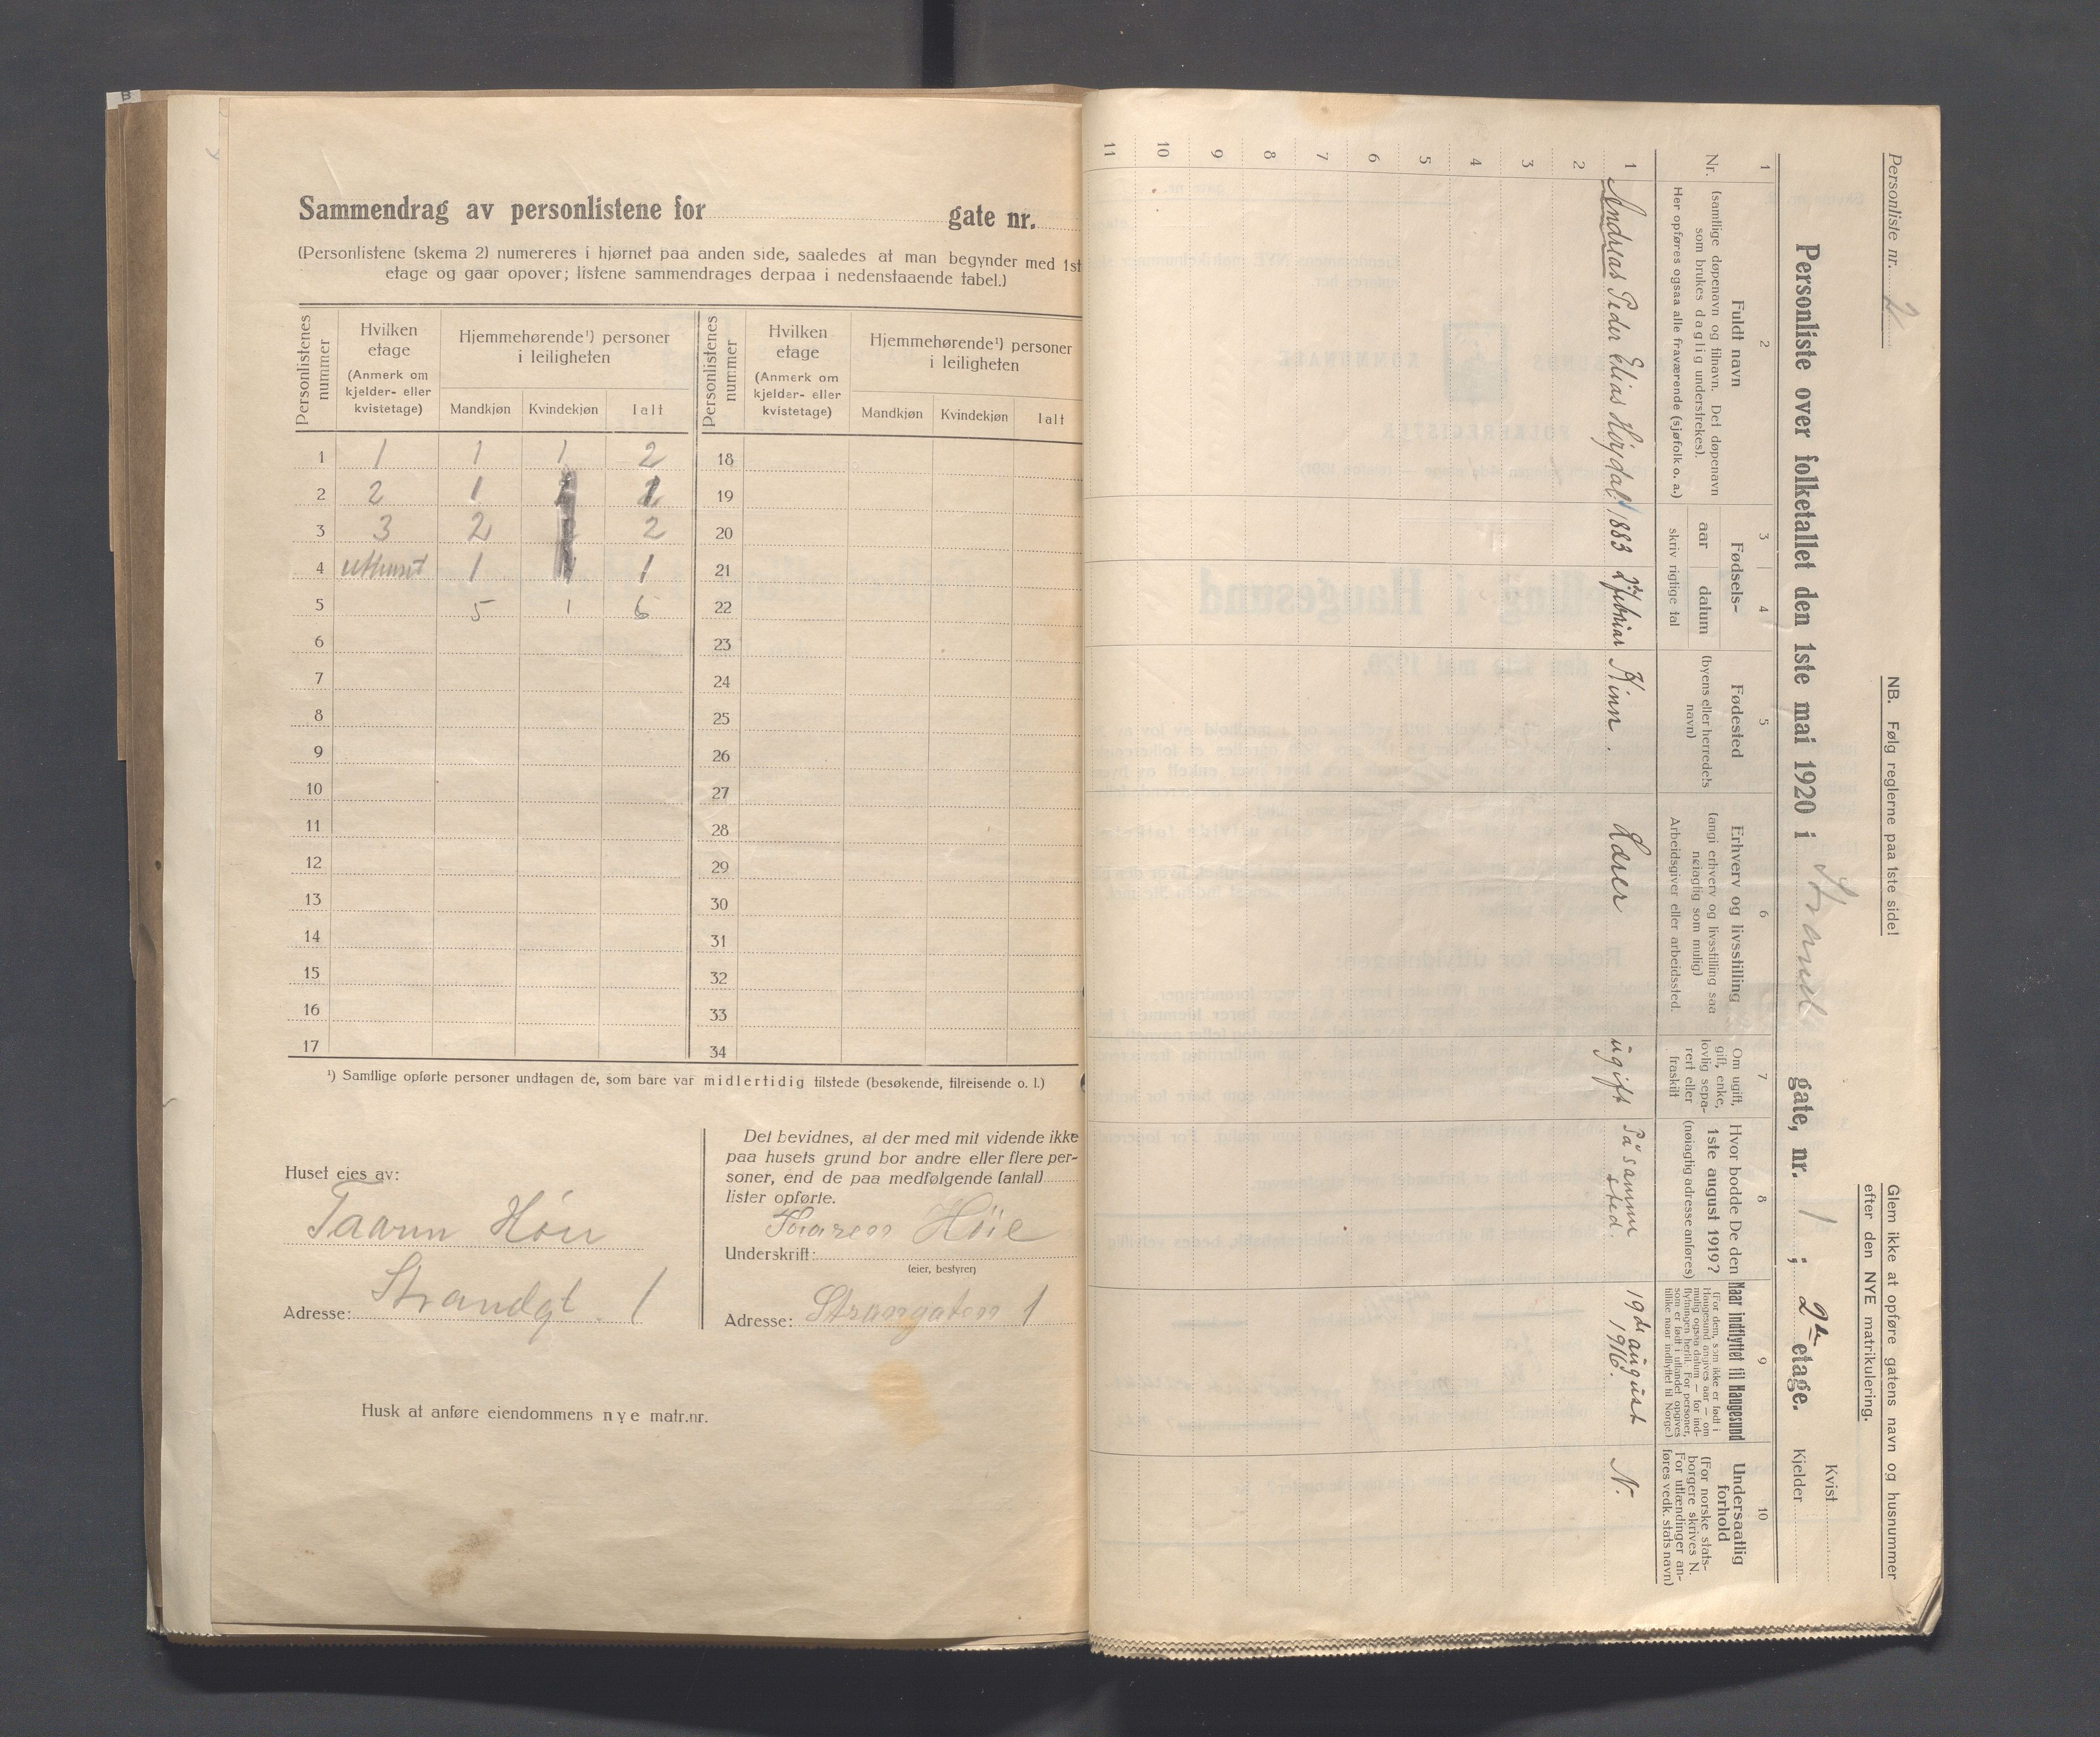 Sammendrag av personlistene for gate nr.
(Personlistene (skema 2) numereres i hjørnet paa anden side, saaledes at man begynder med 1st
etage og gaar opover; listene sammendrages derpaa i nedenstaaende tabel.)
Personlistenes nummer
Hvilken etage (Anmerk om kjelder- eller kvistetage)
Hjemmehørende¹) personer i leiligheten
Mandkjøn Kvindekjøn Ialt
Personlistenes nummer
Hvilken etage (Anmerk om kjelder- eller kvistetage)
Hjemmehørende¹) personer i leiligheten
Mandkjøn Kvindekjøn Ialt
1 1 1 1 2 18
2 2 1 1 19
3 3 2 2 20
4 uthuset 1 1 21
5 5 1 6 22
6 23
7 24
8 25
9 26
10 27
11 28
12 29
13 30
14 31
15 32
16 33
17 34
¹) Samtlige opførte personer undtagen de, som bare var midlertidig tilstede (besøkende, tilreisende o. l.)
Huset eies av:
Adresse: Strandgt. 1
Det bevidnes, at der med mit vidende ikke
paa husets grund bor andre eller flere per-
soner, end de paa medfølgende (antal)
lister opførte.
Underskrift: Karen Höie
(eier, bestyrer)
Adresse: Strangaten 1
Husk at anføre eiendommens nye matr.nr.
Personliste nr. 2
NB. Følg reglerne paa 1ste side!
Glem ikke at opføre gatens navn og husnummer
efter den NYE matrikulering.
Personliste over folketallet den 1ste mai 1920 i Strand gate, nr. 1 ; 2den etage.
Kvist
Kjelder
1 2 3 4 5 6 7 8 9 10
Nr.
Fuldt navn
(samtlige døpenavn og tilnavn. Det døpenavn
som brukes daglig understrekes).
Her opføres ogsaa alle fraværende (sjøfolk o. a.)
Fødsels-
aar datum
skriv rigtige tal
Fødested
(byens eller herredets
navn)
Erhverv og livsstilling
(angi erhverv og livsstilling saa
nøiagtig som mulig)
Arbeidsgiver eller arbeidssted.
Om ugift,
gift, enke,
lovlig sepa-
rert eller
fraskilt
Hvor bodde De den
1ste august 1919?
(nøiagtig adresse anføres)
Naar indflyttet til Haugesund
(For dem, som ikke er født i
Haugesund angives aar — om
mulig ogsaa datum — for ind-
flytningen hertil. For personer,
som er født i utlandet opgives
tillike naar indflyttet til Norge.)
Undersaatlig
forhold
(For norske stats-
borgere skrives N.
For utlændinger an-
føres vedk. stats navn)
1 Andreas Peder Elias Høydal. 1883 2 februar Kinn. Lærer ugift På samme sted. 19de august 1916. N.
2
3
4
5
6
7
8
9
10
11